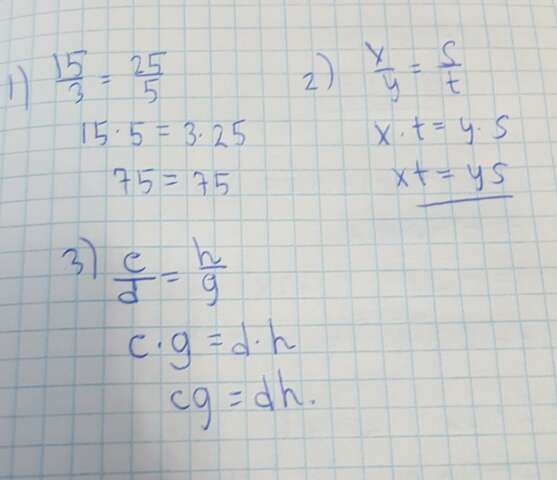 1) 15/3 = 25/5
15·5 = 3·25
75 = 75
2) x/y = s/t
x·t = y·s
xt = ys
3) c/d = h/g
c·g = d·h
cg = dh.